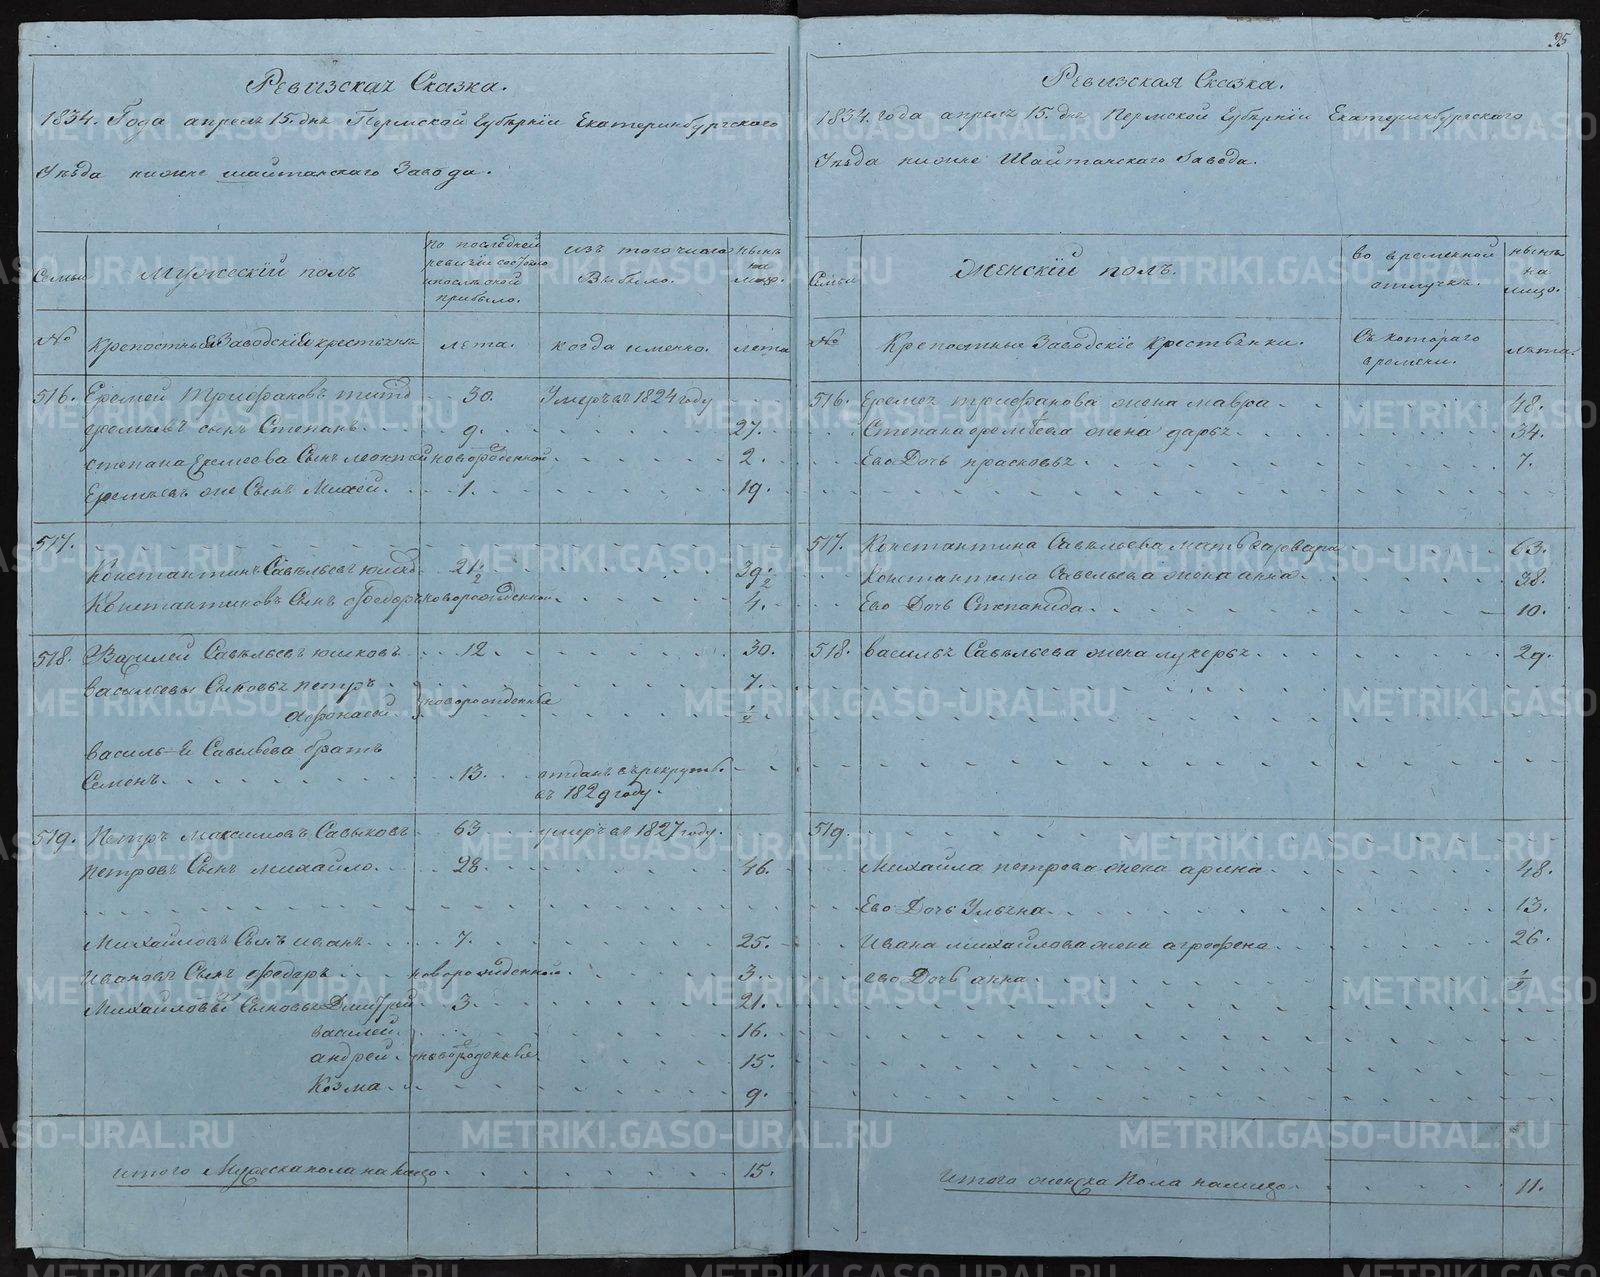 95
Ревизская Сказка.
1834. Года апреля 15. дня Пермской Губернїи Екатеринбургского
Уезда нижне шайтанскаго Завода.
Семьи
Мужескїй полъ
По последней ревизїи состояло и после оной прибыло.
Изъ того числа Выбыло.
ныне на лицо.
№
Крепостные Заводскїе крестьяне
лета.
когда именно.
лета
516. Еремей Трифановъ 30. Умеръ въ 1824 году
еремеевъ сынъ Степанъ 9. 27.
степана Еремеева Сынъ леонтей новорожденной 2.
Еремеевъ же Сынъ Михей. 1. 19.
517.
Константинъ Савельевъ 21 1/2 39. 1/2
Константиновъ Сынъ Федоръ новорожденной. 4.
518. Василей Савельевъ юшковъ 12 30.
васильевы Сыновья петръ 7.
Афонасей новорожденныя 1/2
Василья Савельева братъ
Семенъ. 13. отданъ въ рекруты
въ 1829 году.
519. Петръ Максимовъ Савыковъ 63 умеръ въ 1827 году.
петровъ Сынъ михайло. 28. 46.
Михайловъ Сынъ иванъ. 7. 25.
Ивановъ Сынъ федоръ новорожденной. 3.
Михайловы Сыновья Дмитрей 3. 21.
василей. 16.
андрей. новорожденныя 15.
Козма 9.
Итого Мужеска пола на лицо 15.
Ревизская Сказка.
1834. года апреля 15. дня Пермской Губернїи Екатеринбургского
Уезда нижне Шайтанскаго Завода.
Семьи
Женскїй полъ.
во временной отлучке.
ныне на лицо.
№
Крепостные Заводскїе крестьянки.
Съ котораго времени.
лета.
516. Еремея трифанова жена мавра 48.
Степана еремеева жена дарья 34.
Ево Дочь прасковья 7.
517. Константина Савельева мать 63.
Константина Савельева жена анна 38.
Ево Дочь Степанида. 10.
518. василья Савельева жена лукерья 29.
519.
Михайла петрова жена арина 48.
Ево Дочь Ульяна. 13.
Ивана михайлова жена агрофена 26.
ево Дочь анна 1/2
Итого женска Пола на лицо 11.
METRIKI.GASO-URAL.RU